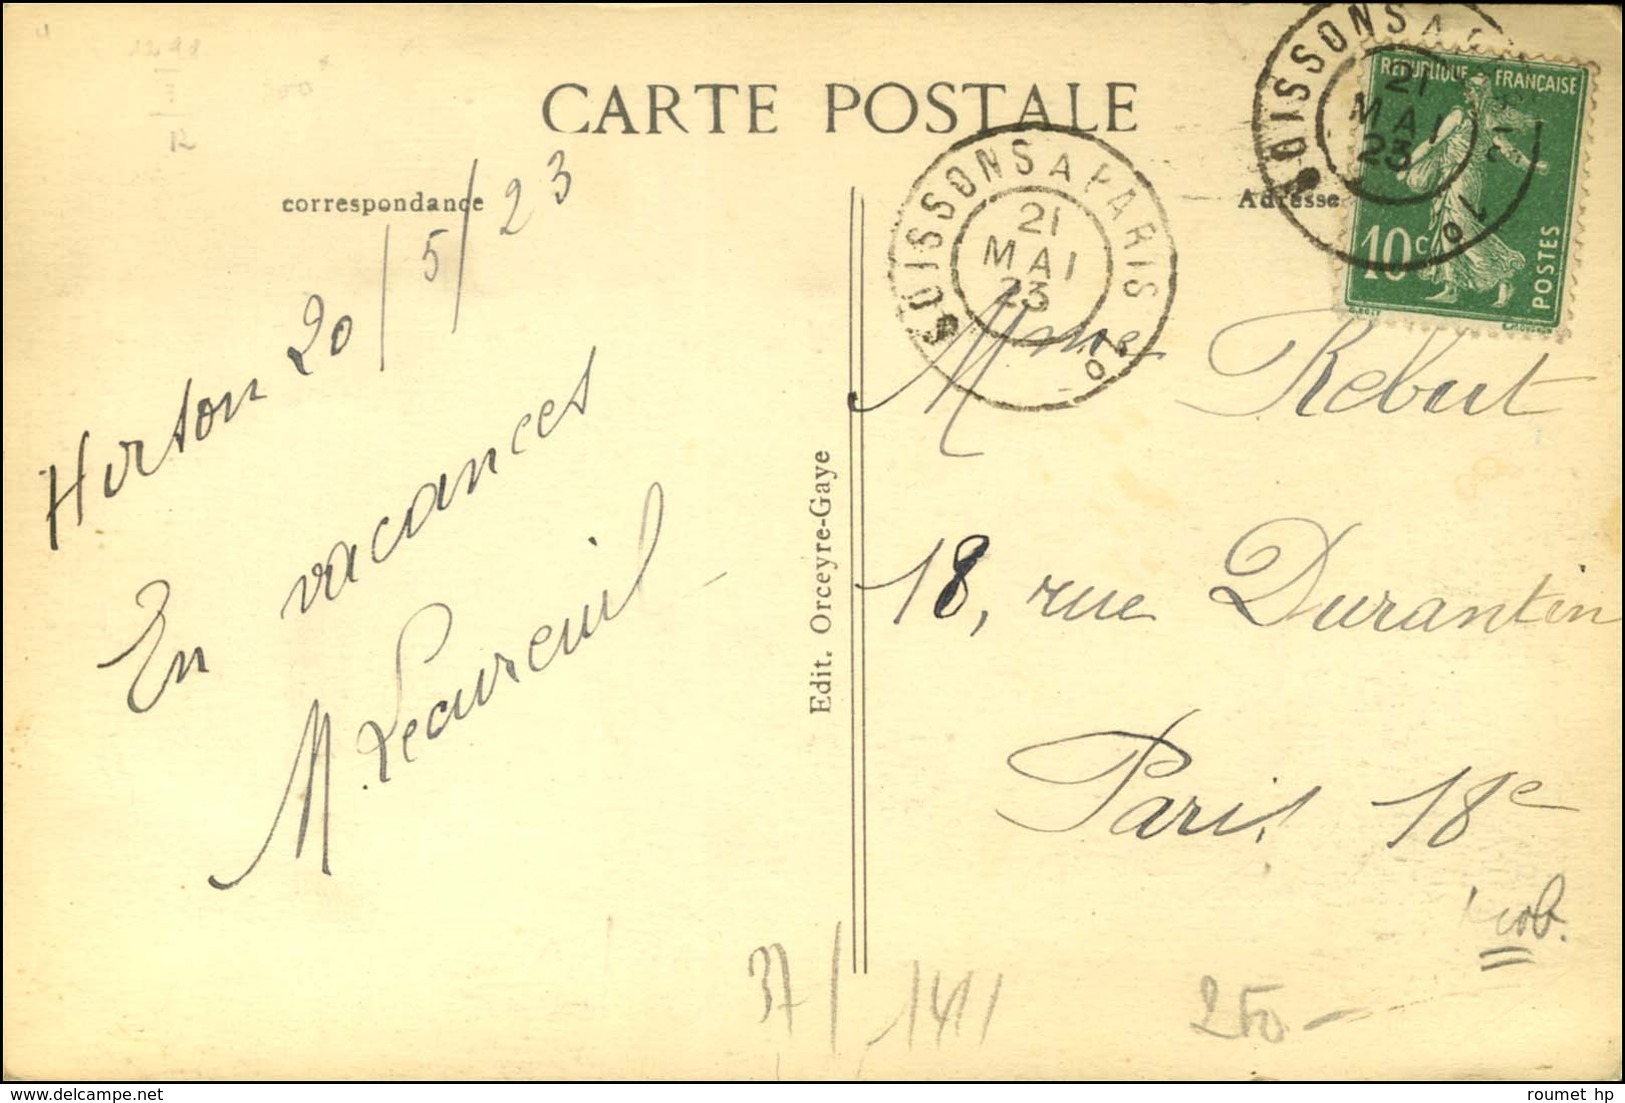 CARTE POSTALE
correspondance
Adresse
SOISSONS A PARIS 1°
21
MAI
23
SOISSONS A
21
MAI
23
1°
REPUBLIQUE FRANÇAISE
10c
POSTES
Hirson 20/5/23
En vacances
M. Lecureuil
Edit. Orceyre-Gaye
Mme Rebut
18, rue Durantin
Paris, 18e
37/
1411
250-
roumet hp